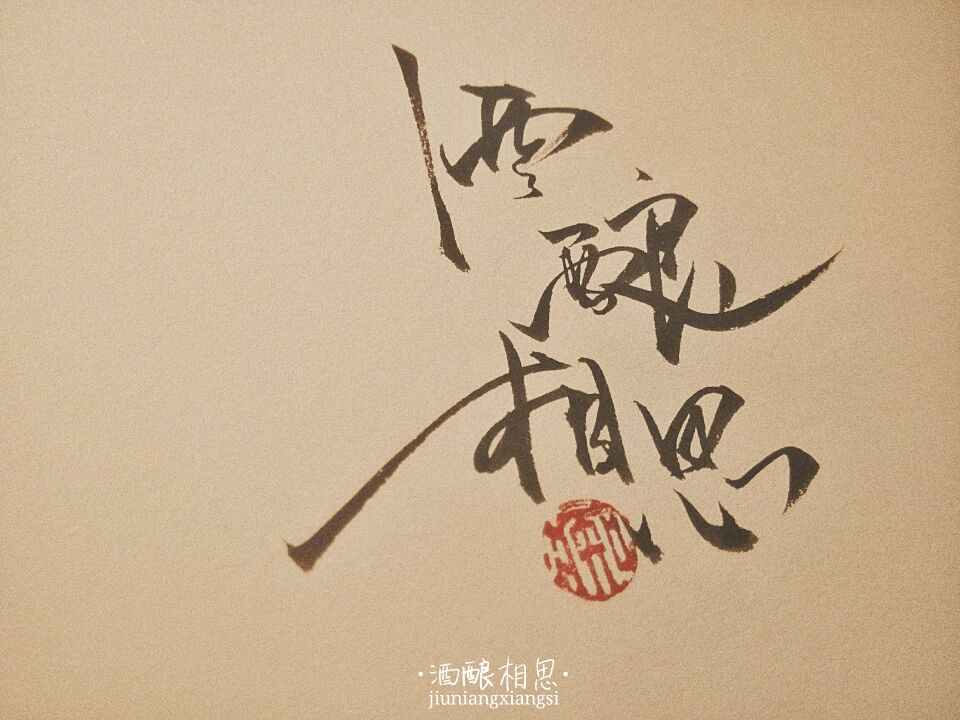 酒
酿
相思
·酒酿相思·
jiuniangxiangsi